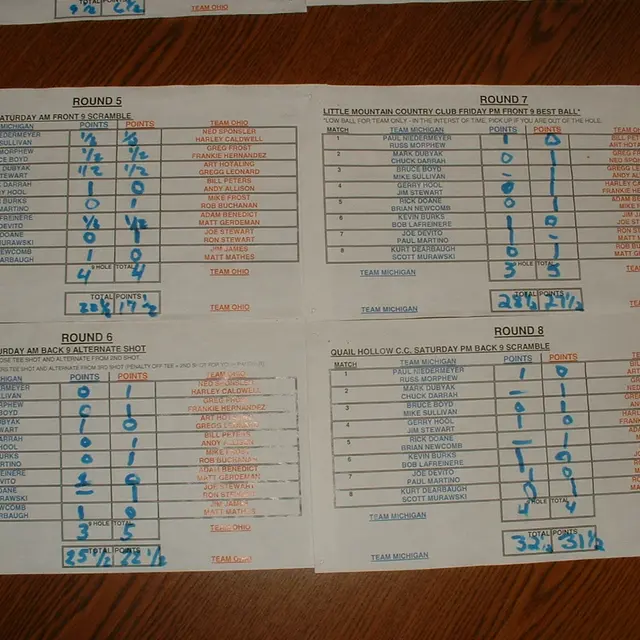 TOTAL POINTS
TEAM OHIO
ROUND 5
SATURDAY AM FRONT 9 SCRAMBLE
MICHIGAN POINTS POINTS TEAM OHIO
NED SPONSLER
SULLIVAN 1/2 HARLEY CALDWELL
MORPHEW 1/2 1/2 GREG FROST
BOYD FRANKIE HERNANDEZ
DUBYAK 1/2 1/2 ART HOTALING
STEWART GREGG LEONARD
DARRAH 1 0 BILL PETERS
HOOL ANDY ALLISON
BURKS 0 1 MIKE FROST
MARTINO ROB BUCHANAN
LAFRENIERE 1/2 1/2 ADAM BENEDICT
DEVITO MATT GERDEMAN
DOANE 0 1 JOE STEWART
MURAWSKI RON STEWART
NEWCOMB 1 0 JIM JAMES
DEARBAUGH MATT MATHES
9 HOLE TOTAL
4 4 TEAM OHIO
TOTAL POINTS
17 1/2 TEAM OHIO
ROUND 6
SATURDAY AM BACK 9 ALTERNATE SHOT
MICHIGAN POINTS POINTS TEAM OHIO
NED SPONSLER
0 1 HARLEY CALDWELL
BOYD 0 1 FRANKIE HERNANDEZ
DUBYAK 1 0
DARRAH 0 1 BILL PETERS
HOOL
BURKS 0 1
MARTINO ROB BUCHANAN
ADAM BENEDICT
DEVITO MATT GERDEMAN
DOANE 1
NEWCOMB
DEARBAUGH 1 0 MATT MATHES
9 HOLE TOTAL
3 5 TEAM OHIO
TOTAL POINTS
25 1/2 22 1/2 TEAM OHIO
ROUND 7
LITTLE MOUNTAIN COUNTRY CLUB FRIDAY PM FRONT 9 BEST BALL*
*LOW BALL FOR TEAM ONLY - IN THE INTERST OF TIME, PICK UP IF YOU ARE OUT OF THE HOLE.
MATCH TEAM MICHIGAN POINTS POINTS
1 PAUL NIEDERMEYER 1 0
RUSS MORPHEW
2 MARK DUBYAK 0 1
CHUCK DARRAH
3 BRUCE BOYD - 1
MIKE SULLIVAN
4 GERRY HOOL 0 1
JIM STEWART
5 RICK DOANE 0 1
BRIAN NEWCOMB
6 KEVIN BURKS 1 0
BOB LAFRENIERE
7 JOE DEVITO 1 -
PAUL MARTINO
8 KURT DEARBAUGH 0 1
SCOTT MURAWSKI
9 HOLE TOTAL
TEAM MICHIGAN 3 5
TOTAL POINTS
TEAM MICHIGAN 28 1/2 27 1/2
ROUND 8
QUAIL HOLLOW C.C. SATURDAY PM BACK 9 SCRAMBLE
MATCH TEAM MICHIGAN POINTS POINTS
1 PAUL NIEDERMEYER 1 0
RUSS MORPHEW
2 MARK DUBYAK - 1
CHUCK DARRAH
3 BRUCE BOYD 0 1
MIKE SULLIVAN
4 GERRY HOOL 1 0
JIM STEWART
5 RICK DOANE - 1
BRIAN NEWCOMB
6 KEVIN BURKS 1 0
BOB LAFRENIERE
7 JOE DEVITO 1 0
PAUL MARTINO
8 KURT DEARBAUGH 0 1
SCOTT MURAWSKI
HOLE TOTAL
TEAM MICHIGAN 4 4
TOTAL POINTS
TEAM MICHIGAN 32 1/2 31 1/2